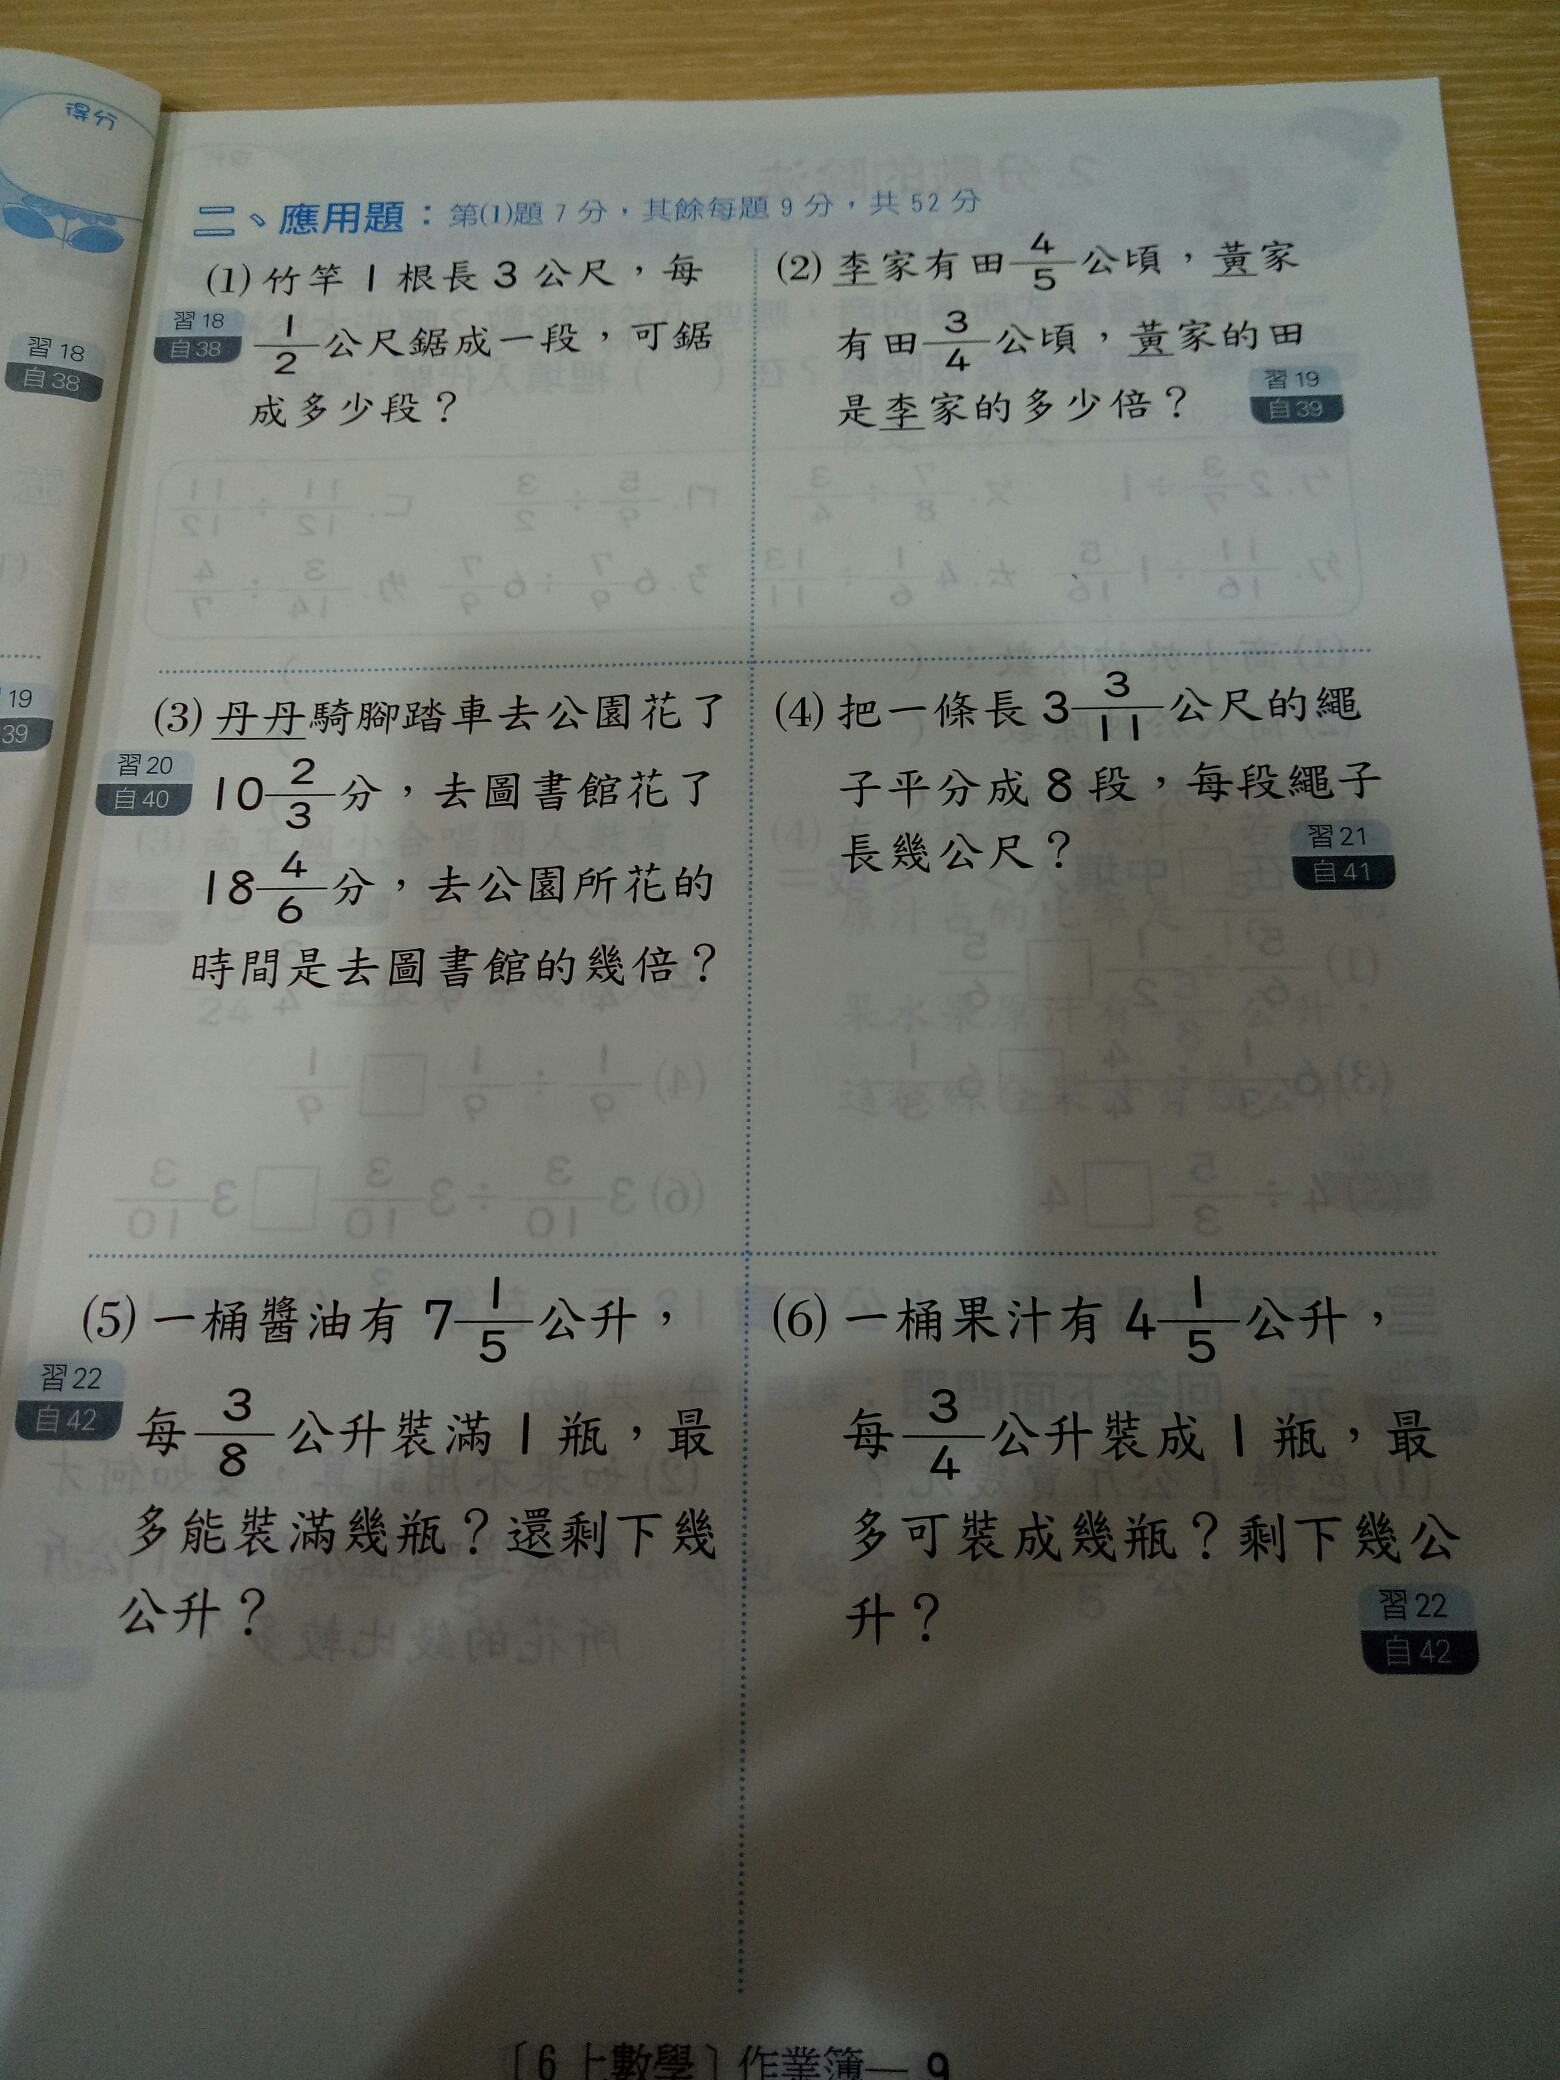 得分
習18
自38
19
39
二、應用題：第(1)題7分，其餘每題9分，共52分
(1) 竹竿1根長3公尺，每
1/2公尺鋸成一段，可鋸
成多少段？
習18
自38
(2) 李家有田4/5公頃，黃家
有田3/4公頃，黃家的田
是李家的多少倍？
習19
自39
(3) 丹丹騎腳踏車去公園花了
10 2/3分，去圖書館花了
18 4/6分，去公園所花的
時間是去圖書館的幾倍？
習20
自40
(4) 把一條長3 3/11公尺的繩
子平分成8段，每段繩子
長幾公尺？
習21
自41
(5) 一桶醬油有7 1/5公升，
每3/8公升裝滿1瓶，最
多能裝滿幾瓶？還剩下幾
公升？
習22
自42
(6) 一桶果汁有4 1/5公升，
每3/4公升裝成1瓶，最
多可裝成幾瓶？剩下幾公
升？
習22
自42
〔6上數學〕作業簿—9